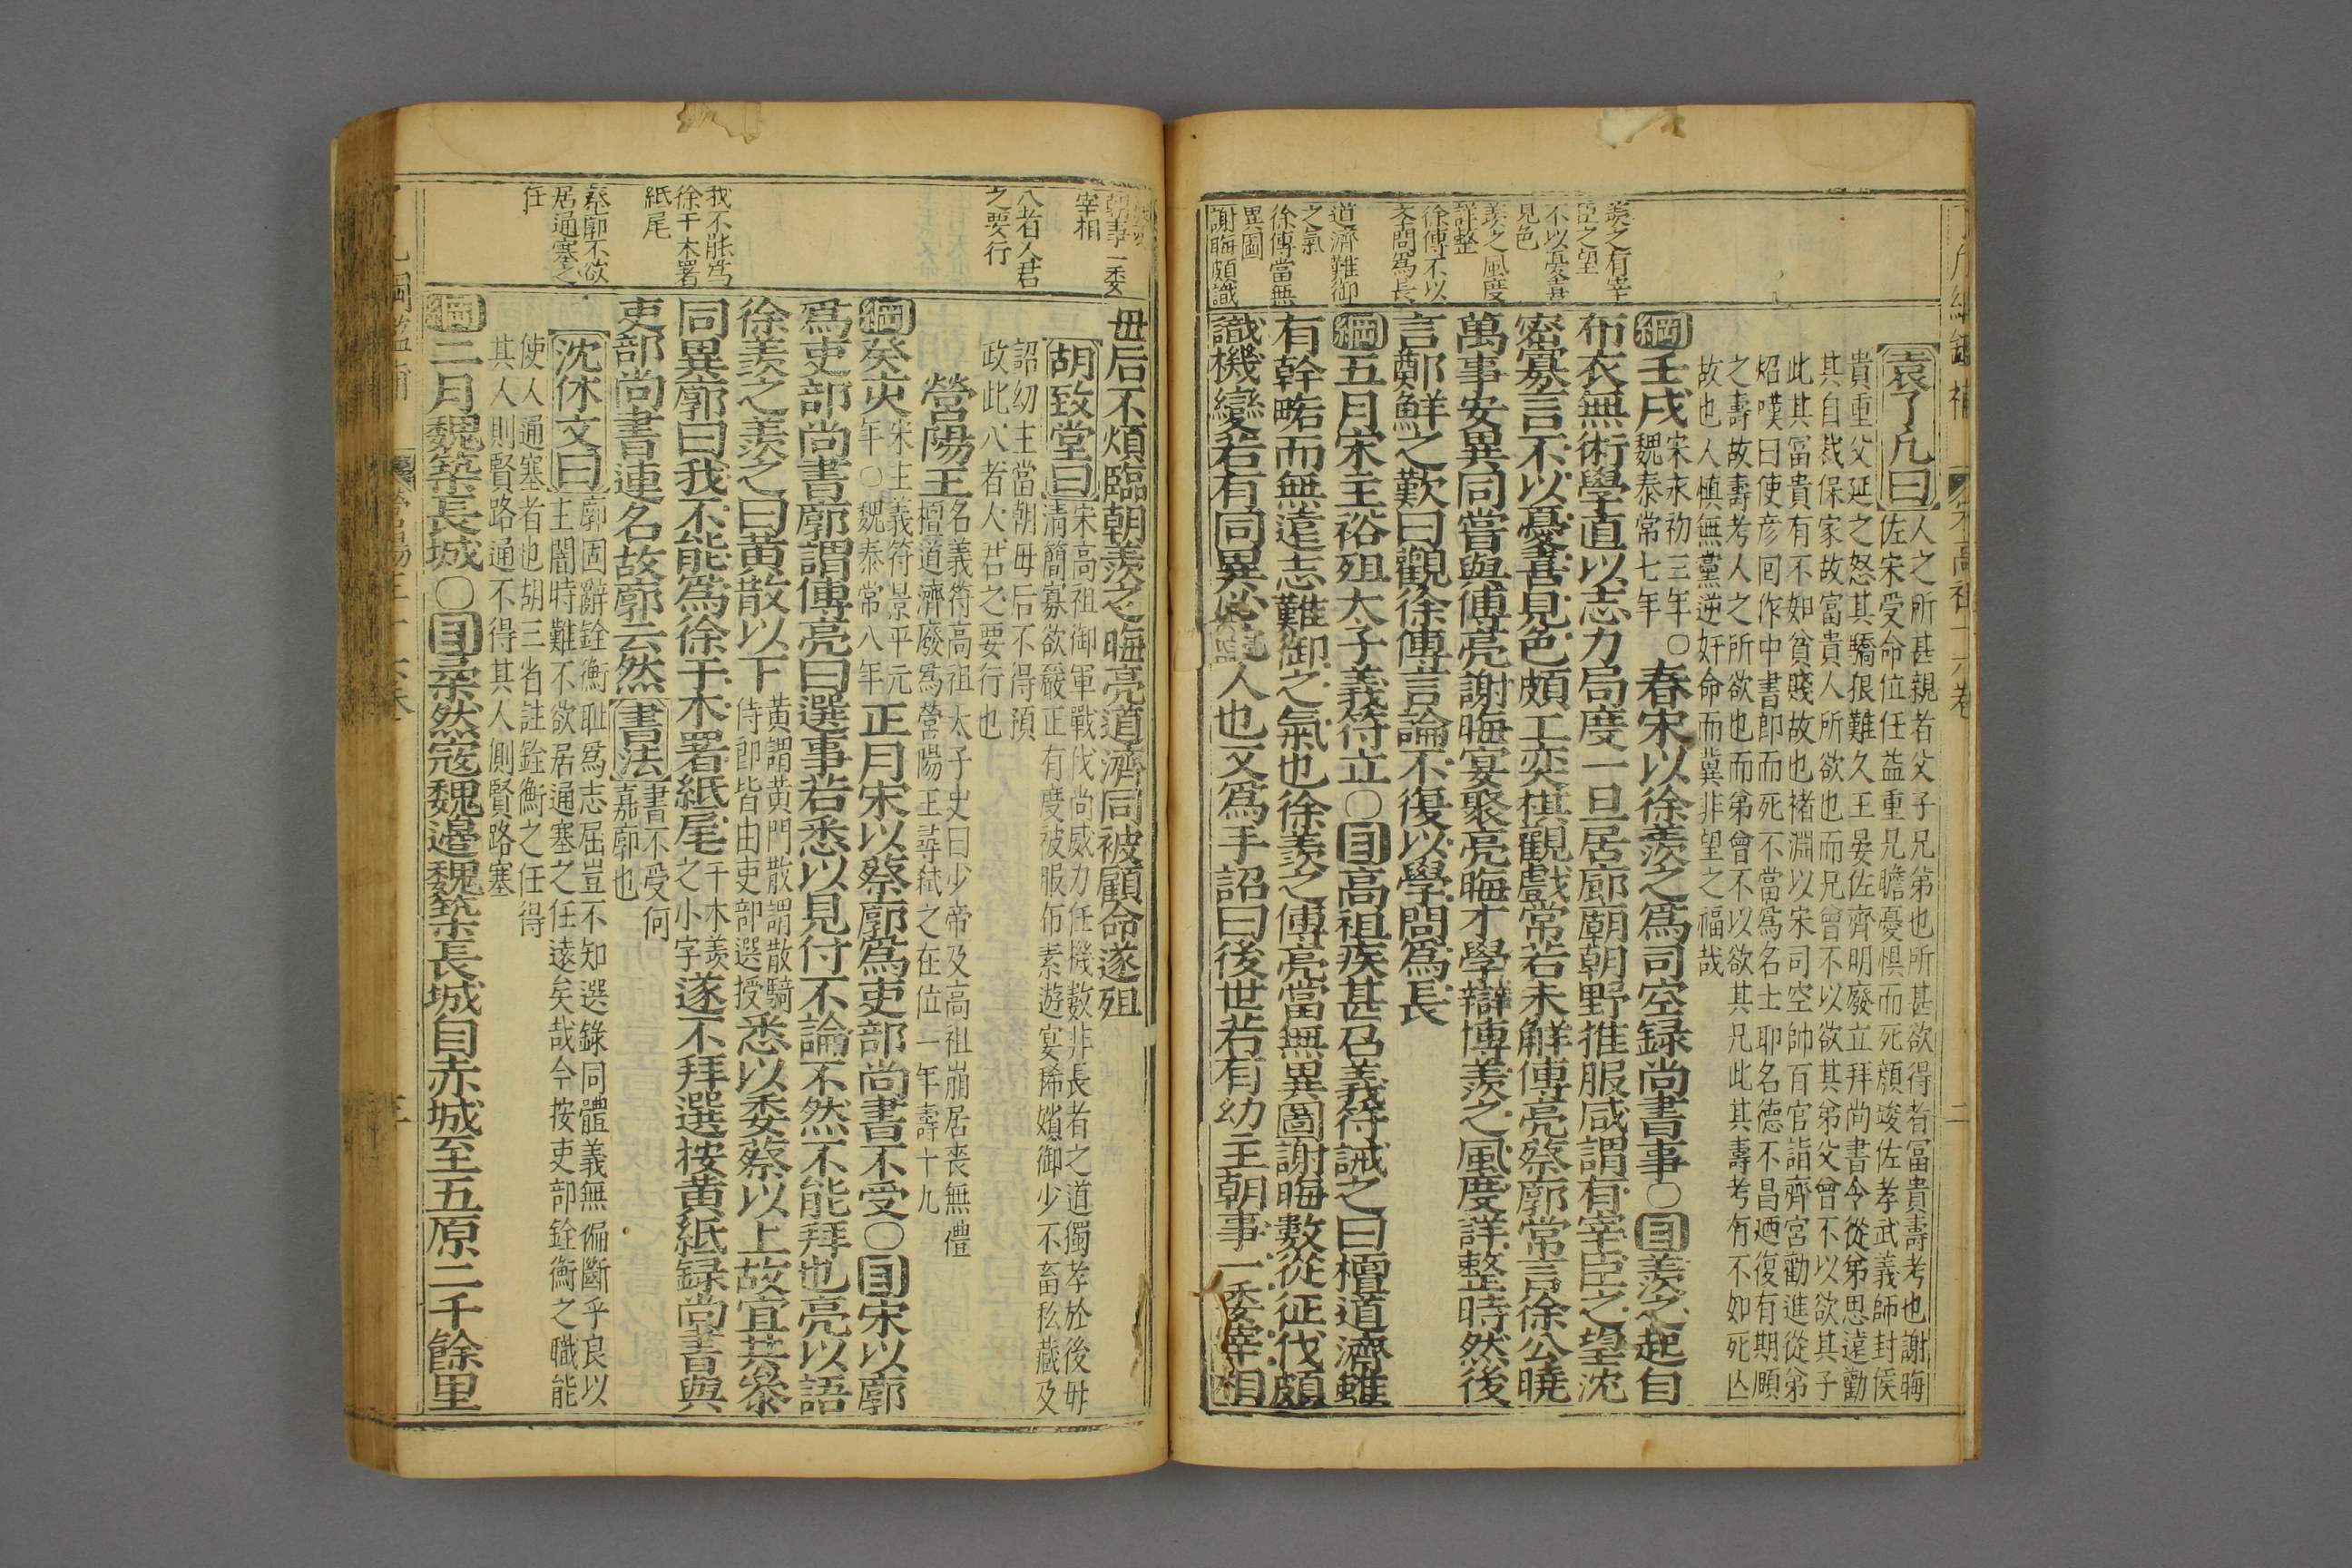 羨之有宰
臣之望
不以憂喜
見色
羨之風度
詳整
徐傅不以
學問爲長
道濟難御
之氣
徐傅當無
異圖
謝晦頗識
袁了凡曰
人之所甚親者父子兄弟也所甚欲得者富貴壽考也謝晦
佐宋受命位任益重兄瞻憂惧而死顔竣佐孝武義師封侯
貴重父延之怒其驕狠難久王晏佐齊明廢立拜尚書令從弟思遠勸
其自裁保家故富貴人所欲也而兄曾不以欲其弟父曾不以欲其子
此其富貴有不如貧賤故也褚淵以宋司空帥百官詣齊宮勸進從弟
炤嘆曰使彦回作中書郎而死不當爲名士耶名德不昌廼復有期頤
之壽故壽考人之所欲也而弟曾不以欲其兄此其壽考有不如死亾
故也人慎無黨逆奸命而冀非望之福哉
綱壬戌宋永初三年魏泰常七年〇春宋以徐羨之爲司空録尚書事〇目羨之起自
布衣無術學直以志力局度一旦居廊廟朝野推服咸謂有宰臣之望沈
密寡言不以憂喜見色頗工奕棋觀戲常若未解傅亮蔡廓常言徐公曉
萬事安異同嘗與傅亮謝晦宴聚亮晦才學辯博羨之風度詳整時然後
言鄭鮮之歎曰觀徐傅言論不復以學問爲長
綱五月宋主裕殂太子義符立〇目高祖疾甚召義符誡之曰檀道濟雖
有幹畧而無遠志難御之氣也徐羨之傅亮當無異圖謝晦數從征伐頗
識機變若有同異必此人也又爲手詔曰後世若有幼主朝事一委宰相
朝事一委
宰相
八者人君
之要行
我不能爲
徐干木署
紙尾
蔡廓不欲
居通塞之
任
母后不煩臨朝羨之晦亮道濟同被顧命遂殂
胡致堂曰
宋高祖御軍戰伐尚威力任機數非長者之道獨孝於後母
清簡寡欲嚴正有度被服布素遊宴稀嬪御少不畜私藏及
詔幼主當朝毋后不得預
政此八者人君之要行也
營陽王名義符高祖太子史曰少帝及高祖崩居喪無禮
檀道濟廢爲營陽王尋弑之在位一年壽十九
綱癸亥年宋主義符景平元年〇魏泰常八年正月宋以蔡廓爲吏部尚書不受〇目宋以廓
爲吏部尚書廓謂傅亮曰選事若悉以見付不論不然不能拜也亮以語
徐羨之羨之曰黄散以下黄謂黄門散謂散騎侍郎皆由吏部選授悉以委蔡以上故宜共參
同異廓曰我不能爲徐干木署紙尾干木羨之小字遂不拜選按黄紙録尚書與
吏部尚書連名故廓云然書法書不受何嘉廓也
沈休文曰
廓固辭銓衡耻爲志屈豈不知選錄同體義無偏斷乎良以
主闇時難不欲居通塞之任遠矣哉今按吏部銓衡之職能
使人通塞者也胡三省註銓衡之任得
其人則賢路通不得其人側賢路塞
綱二月魏築長城〇目柔然寇魏邉魏築長城自赤城至五原二千餘里